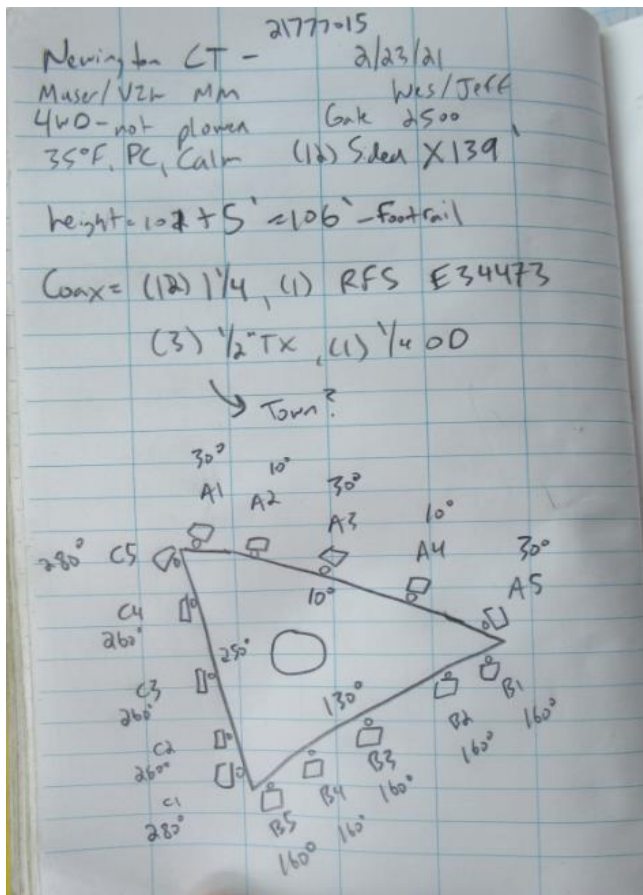 21777015
Newington CT - 2/23/21
Muser/VZW MM Wes/Jeff
4WD-not plowed Gate 2500
35°F, PC, Calm (12) Sided X139'
height=101+5'=106'-Footrail
Coax= (12) 1 1/4, (1) RFS E34473
(3) 1/2" TX, (1) 1/4 OD
Town?
30° 10° 30° 10° 30°
A1 A2 A3 A4 A5
280° C5
10°
C4
260°
250°
C3
260°
130°
B1
160°
B2
160°
C2
260°
B3
160°
B4
160°
C1
280°
B5
160°